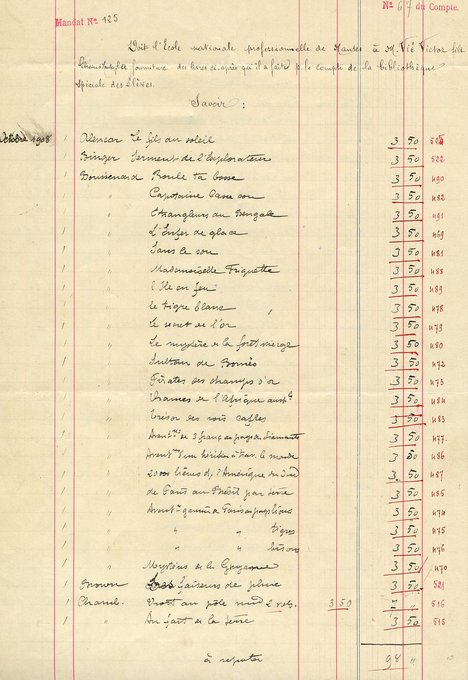 Mandat N° 125
N° 67 du Compte.
Doit l'Ecole nationale professionnelle de Nantes à M. Vié Victor
fourniture des livres ci-après qu'il a faite p. le compte de la bibliothèque
spéciale des Elèves.
Savoir :
Octobre 1908 1 Alencar Le fils du soleil 3 50 525
1 Binger Serment de l'Explorateur 3 50 522
1 Boussenard Roule ta bosse 3 50 490
1 " Capitaine Casse cou 3 50 482
1 " Etrangleurs du Bengale 3 50 491
1 " L'Enfer de glace 3 50 469
1 " Sans le sou 3 50 481
1 " Mademoiselle Friquette 3 50 488
1 " L'Ile en feu 3 50 489
1 " Le tigre blanc 3 50 478
1 " Le secret de l'or 3 50 479
1 " Le mystère de la forêt vierge 3 50 480
1 " Sultan de Bornéo 3 50 472
1 " Pirates des champs d'or 3 50 473
1 " Drames de l'Afrique austle 3 50 484
1 " Trésor des rois cafres 3 50 483
1 " Aventres de 3 franç. au pays des diamants 3 50 477
1 " Aventres d'un héritier à trav. le monde 3 50 486
1 " 20000 lieues d. l'Amérique du Sud 3 50 487
1 " de Paris au Brésil par terre 3 50 485
1 " Avent. gamin de Paris au pays lions 3 50 474
1 " " " tigres 3 50 475
1 " " " bisons 3 50 476
1 " Mystères de la Guyane 3 50 470
1 Brown Les faiseurs de pluie 3 50 521
1 au pôle sud 2 vols. 3 50 7 " 516
1 " Au fait de la terre 3 50 515
98 "
à reporter